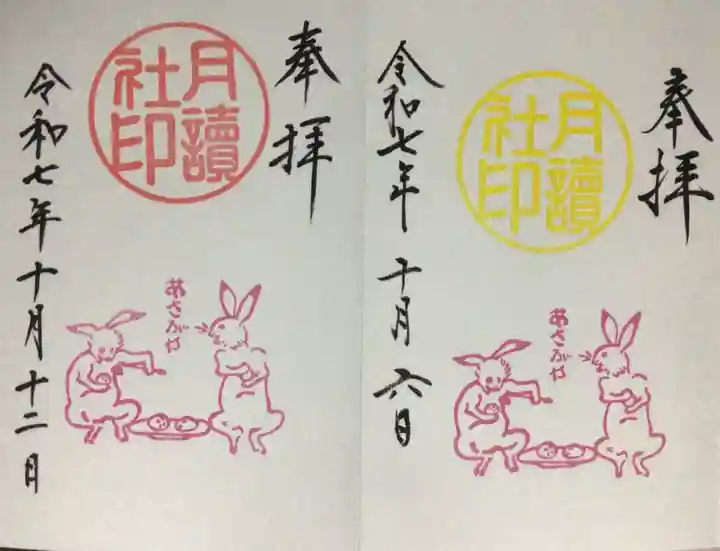 奉拝
月讀
社印
あさぶけ
令和七年十月十二日
奉拝
月讀
社印
あさぶけ
令和七年十月六日